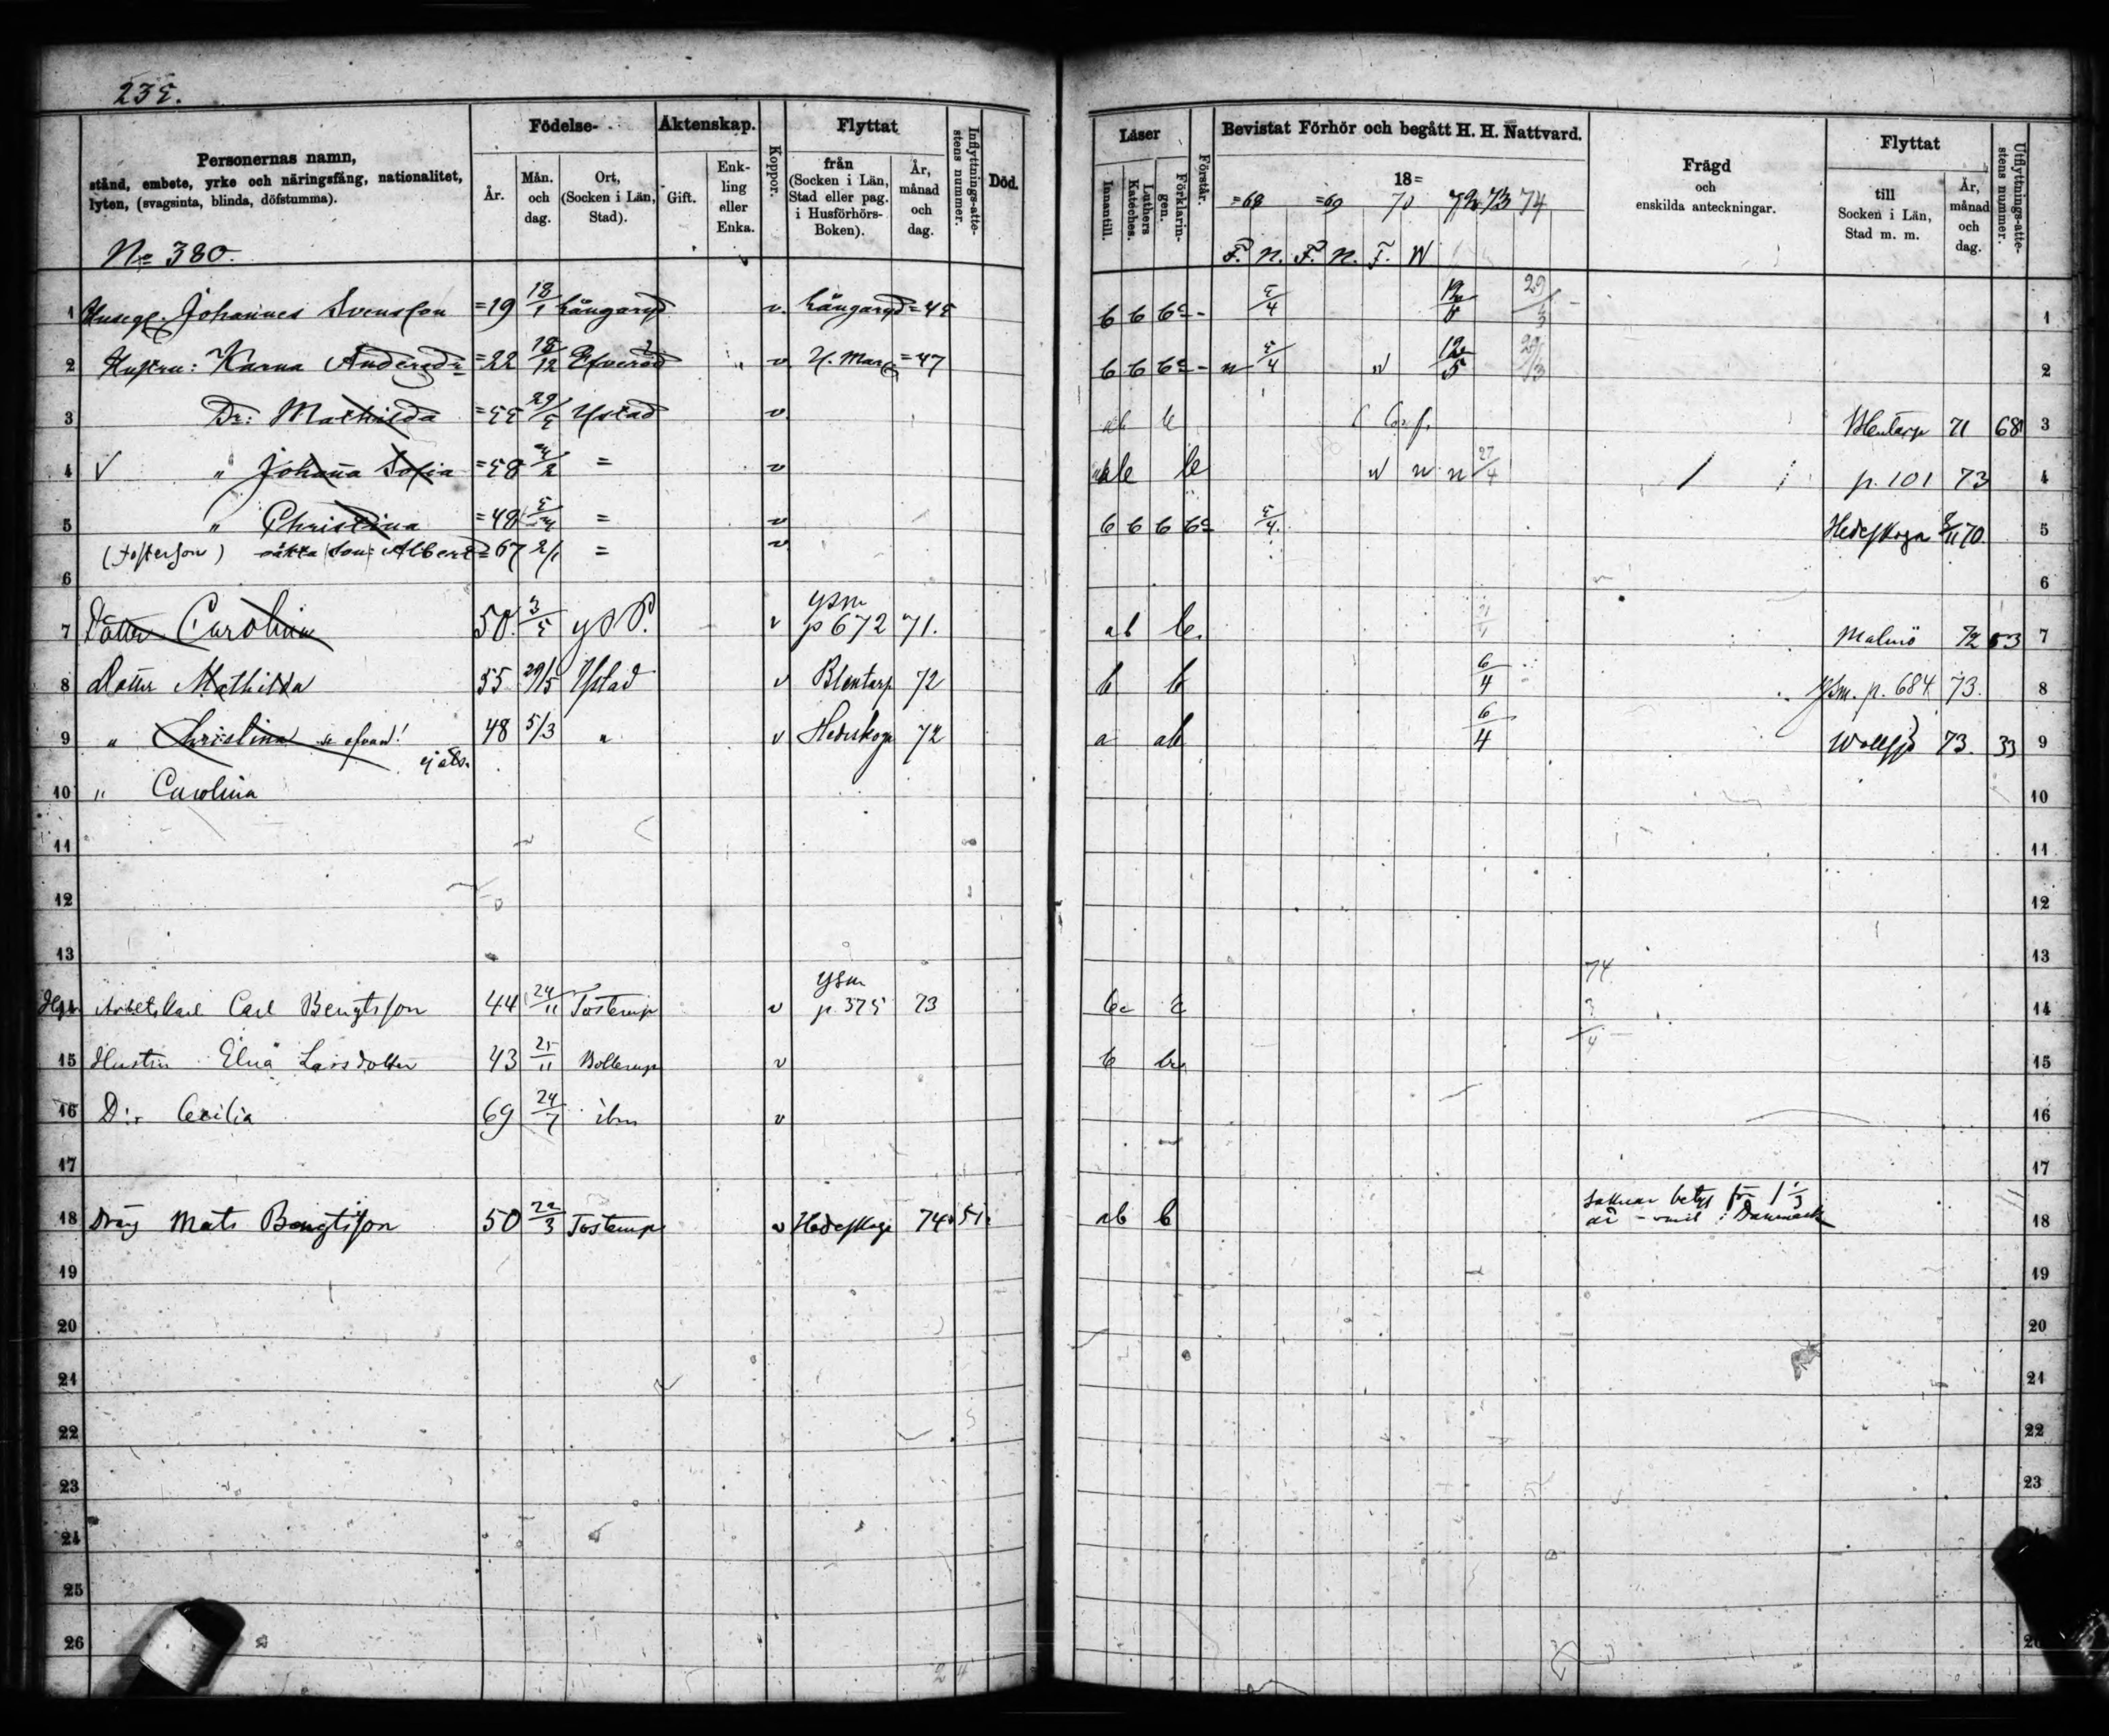 235.
Personernas namn,
stånd, embete, yrke och näringsfång, nationalitet,
lyten, (svagsinta, blinda, döfstumma).
Födelse-
År.
Mån. och dag.
Ort, (Socken i Län, Stad).
Äktenskap.
Gift.
Enkling eller Enka.
Koppor.
Flyttat
från (Socken i Län, Stad eller pag. i Husförhörs-Boken).
År, månad och dag.
Inflyttnings-attestens nummer.
Död.
Läser
Innantill.
Luthers Kateches.
Förklaringen.
Förstår.
Bevistat Förhör och begått H. H. Nattvard.
18=
=68 =69 70 72 73 74
F. N. F. N. F. N
Frägd
och
enskilda anteckningar.
Flyttat
till Socken i Län, Stad m. m.
År, månad och dag.
Utflyttnings-attestens nummer.
No 380.
1 Husegf. Johannes Svensson =19 18/1 Långaryd v. Långaryd =45 b b bc - 5/4 29/3 1
2 Hustru: Karna Andersdr =22 18/12 Efveröd v Y. Mar =47 b b bc - n 5/4 n 12/5 29/3 2
3 Dr: Mathilda =55 29/5 Ystad v ab b Blentarp 71 68 3
4 √ " Johanna Sofia =58 = v b n n n 27/4 p. 101 73 4
5 " Christina =48 = v b b b bc 5/4. Hedeskoga 70. 5
(Fosterson) oäkta Son: Albert =67 2/1 = v
6 6
7 Dotter Carolina 50. 3/5 v ysm p 672 71. ab b. Malmö 72 53 7
8 Dotter Mathilda 55 29/5 Ystad v Blentarp 72 b b 6/4 Ysm. p. 684 73. 8
9 " Christina se ofvan! 48 5/3 " v Hedeskoga 72 a ab 6/4 73. 33 9
10 " Carolina 10
11 11
12 12
13 74 13
14 Arbetskarl Carl Bengtsson 44 24/11 Tosterup v ysm p. 375 73 3/4 14
15 Hustru Elna Larsdotter 43 25/11 Bollerup v b 15
16 D:r Cecilia 69 24/7 ibm v 16
17 17
18 Dräng Mats Bengtsson 50 22/3 Tosterup v Hedeskoga 74 51. ab b saknar betyg för 1 1/3 år - varit i Danmark 18
19 19
20 20
21 21
22 22
23 23
24
25
26